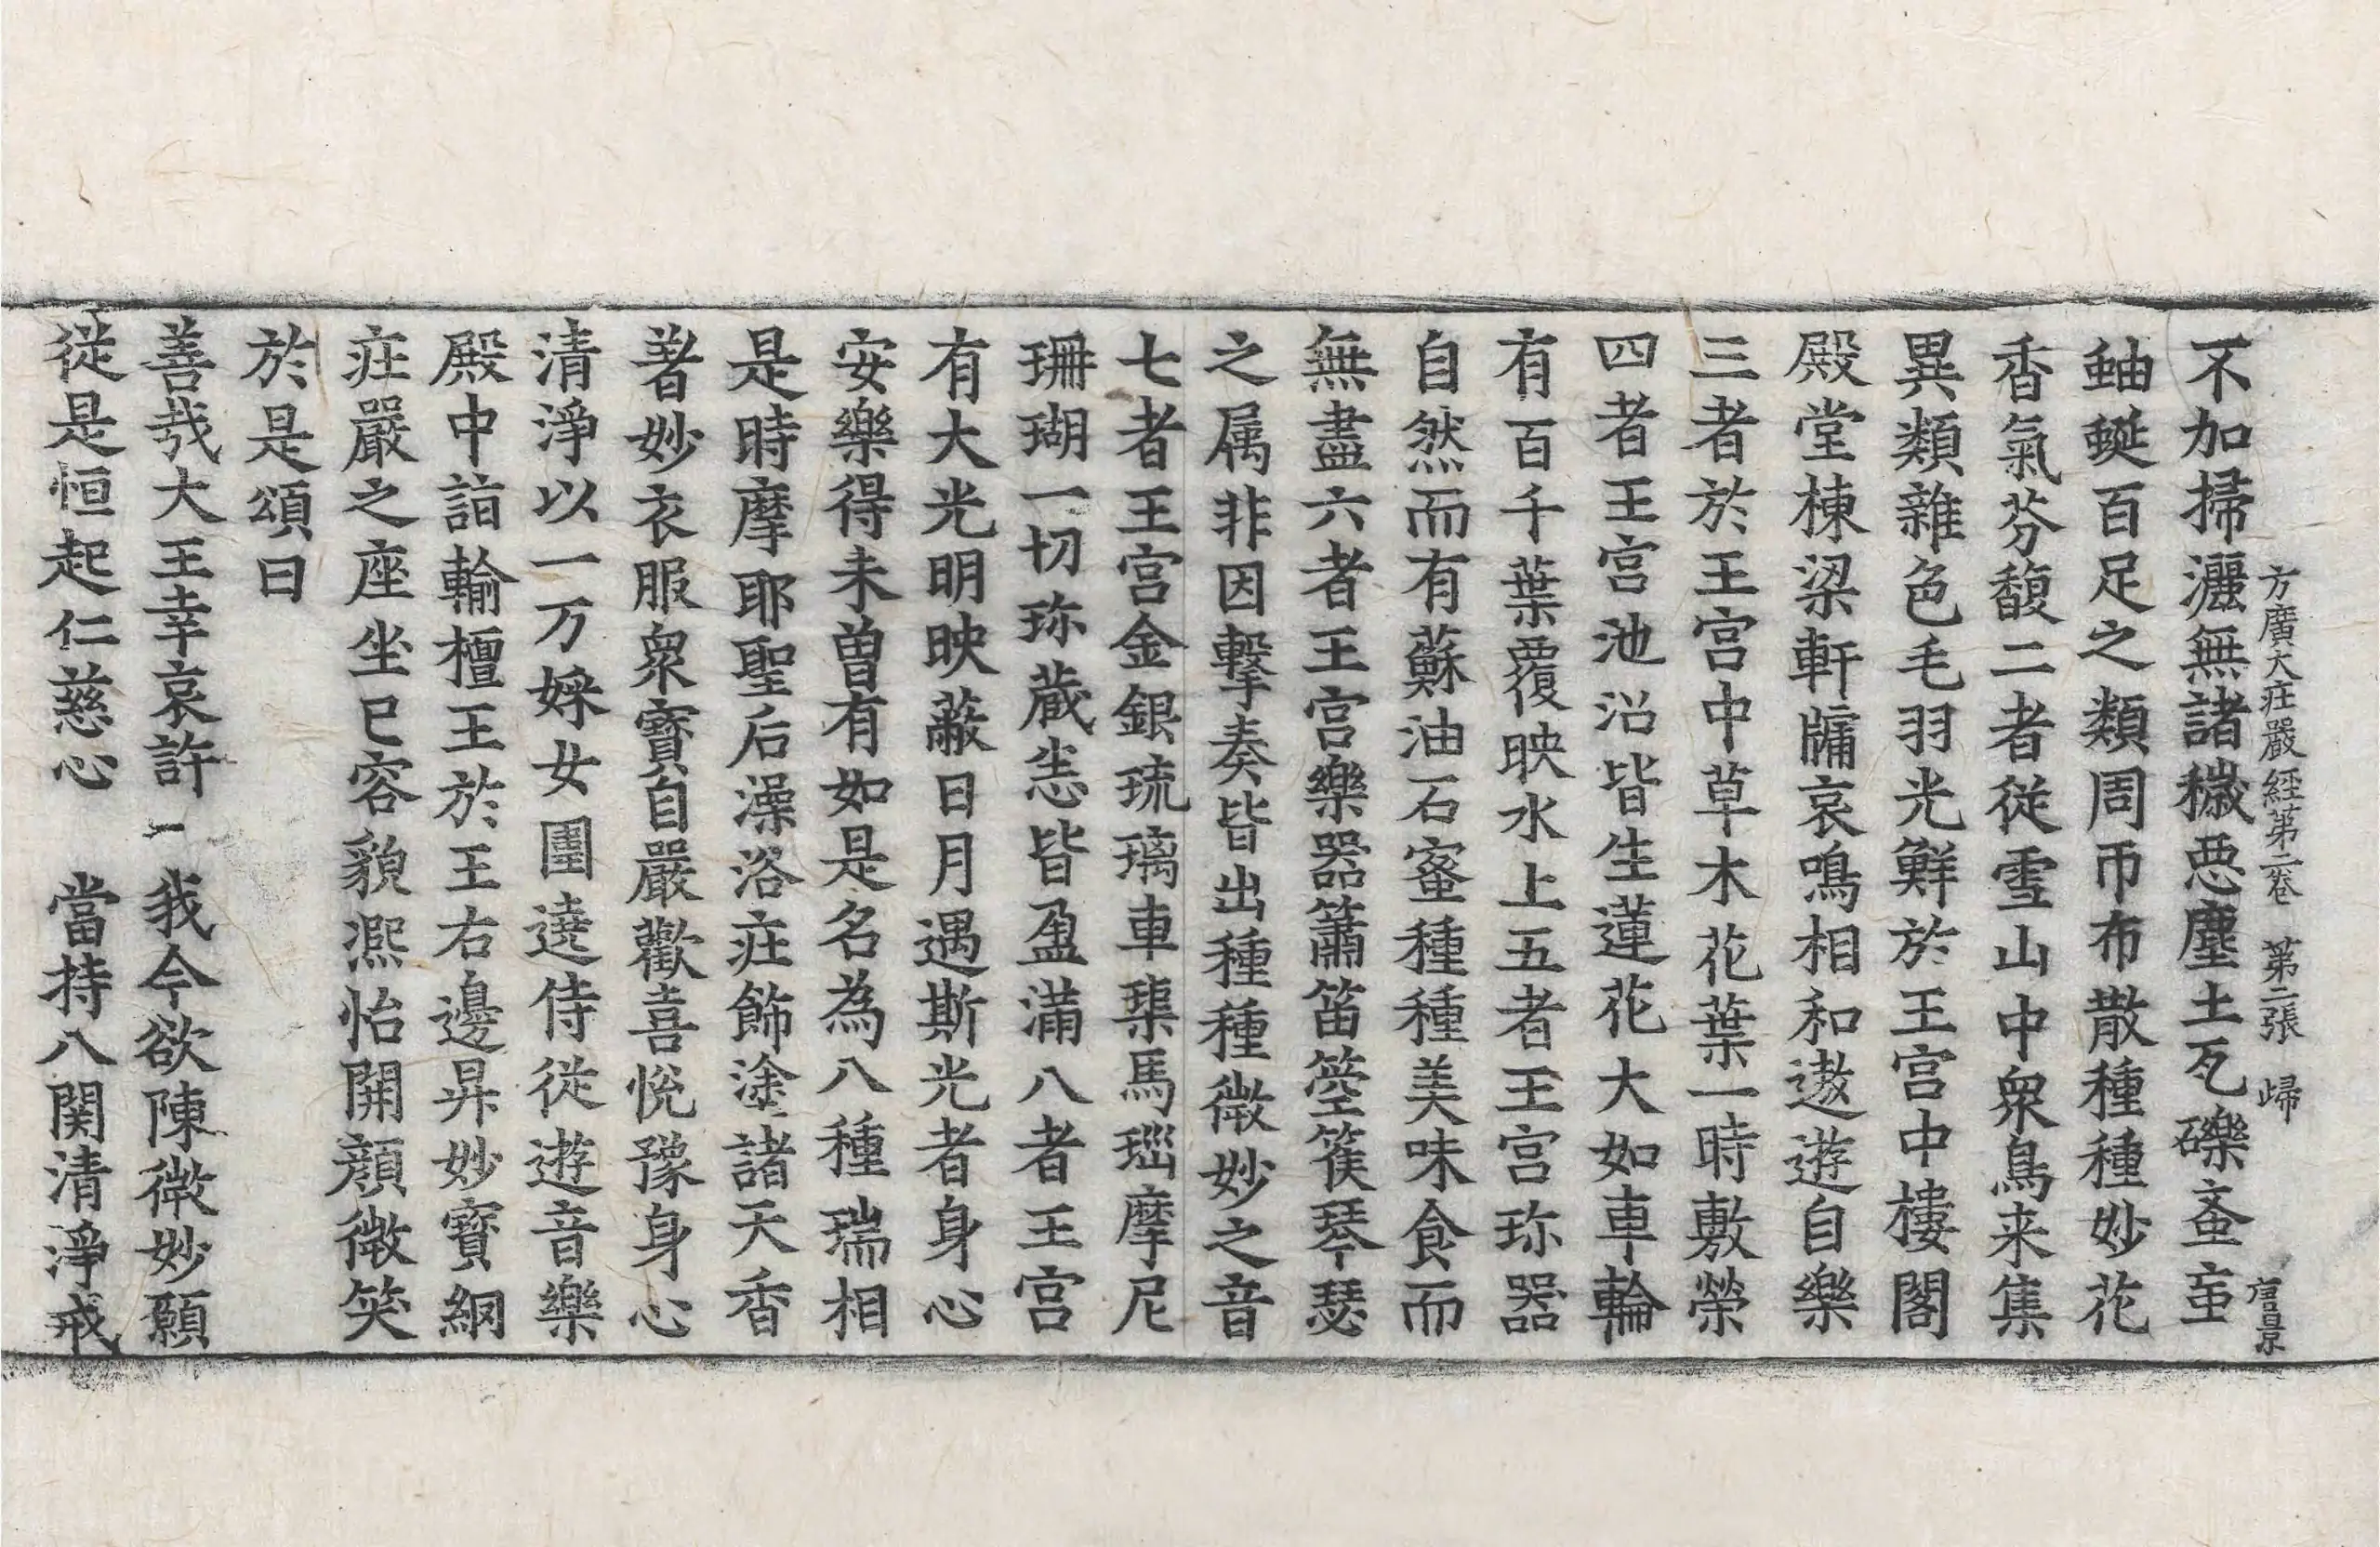 方廣大庄嚴經第二卷　第二張　歸
不加掃灑無諸穢惡塵土瓦礫蚉䖟
蚰蜒百足之類周帀布散種種妙花
香氣芬馥二者從雪山中衆鳥来集
異類雜色毛羽光鮮於王宫中樓閣
殿堂棟梁軒牖哀鳴相和遨遊自樂
三者於王宫中草木花葉一時敷榮
四者王宫池沼皆生蓮花大如車輪
有百千葉覆映水上五者王宫珎器
自然而有蘇油石蜜種種美味食而
無盡六者王宫樂器簫笛箜篌琴瑟
之属非因擊奏皆出種種微妙之音
七者王宫金銀琉璃車𤦲馬瑙摩尼
珊瑚一切珎蔵悉皆盈滿八者王宫
有大光明映蔽日月遇斯光者身心
安樂得未曽有如是名為八種瑞相
是時摩耶聖后澡浴庄飾塗諸天香
著妙衣服衆寶自嚴歡喜悅豫身心
清淨以一万婇女圍遶侍從遊音樂
殿中詣輸檀王於王右邊昇妙寶網
庄嚴之座坐已容貌熈怡開顔微笑
於是頌曰
善㢤大王幸哀許　我今欲陳微妙願
從是恒起仁慈心　當持八関清淨戒